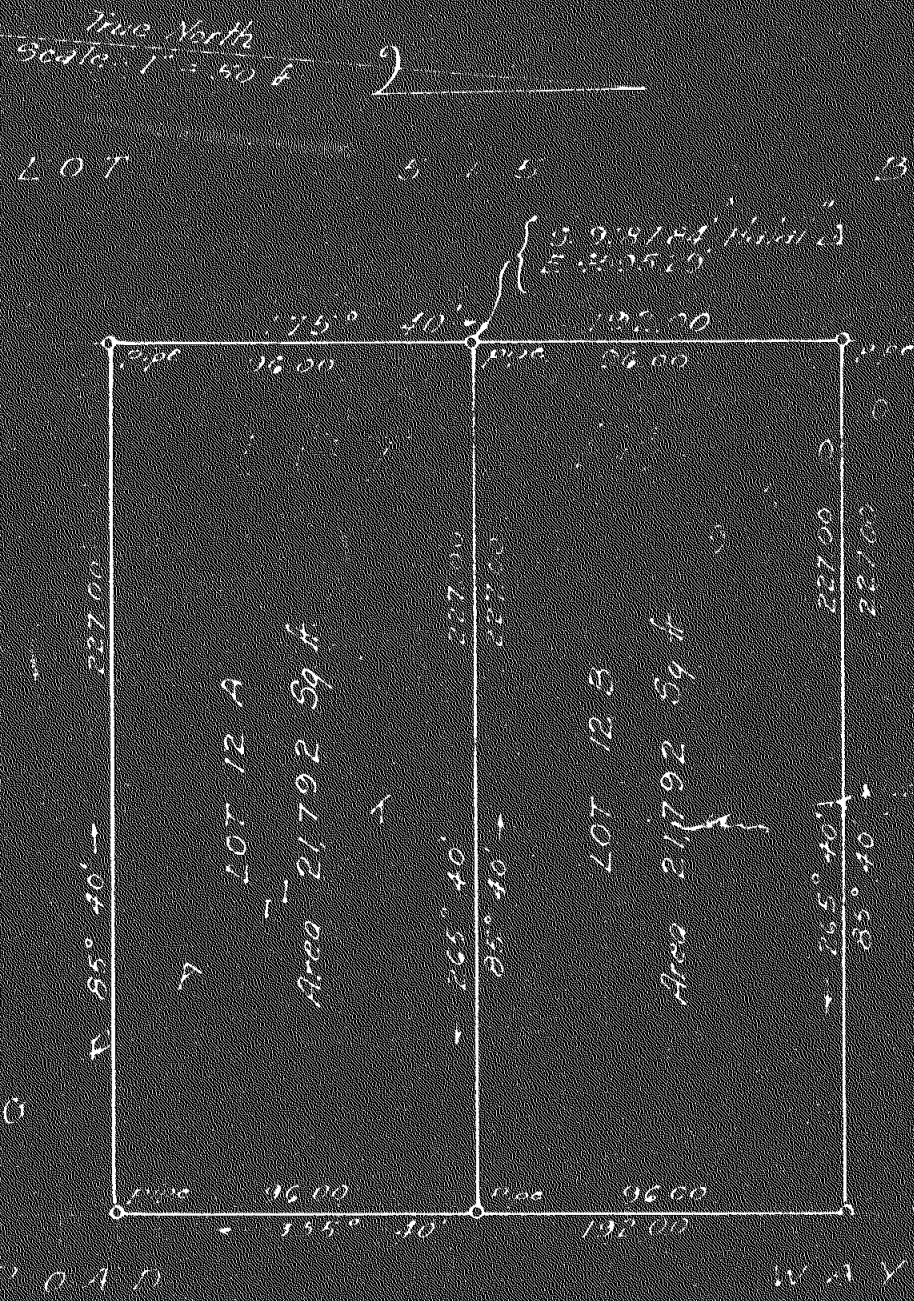 True North
Scale 1" = 50 ft
LOT 515 B
175° 40' 192.00
pipe 96.00 pipe 96.00 pipe
227.00
227.00
227.00
227.00
227.00
LOT 12 A
Area 21,792 Sq ft
LOT 12 B
Area 21,792 Sq ft
85° 40'
265° 40'
85° 40'
265° 40'
85° 40'
pipe 96.00 pipe 96.00
40' 192.00
WAY